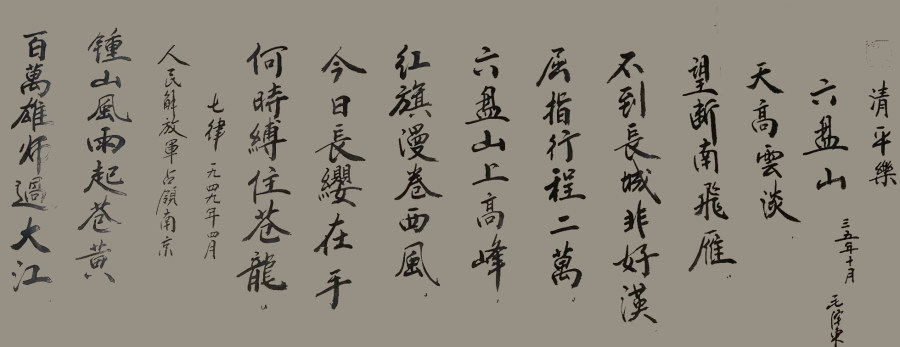 清平樂
六盘山
三五年十月
毛澤東
天高雲淡
望斷南飛雁
不到長城非好漢
屈指行程二萬
六盘山上高峰
红旗漫卷西風
今日長纓在手
何時縛住苍龍
七律 一九四九年四月
人民解放軍占領南京
鍾山風雨起苍黄
百萬雄师過大江